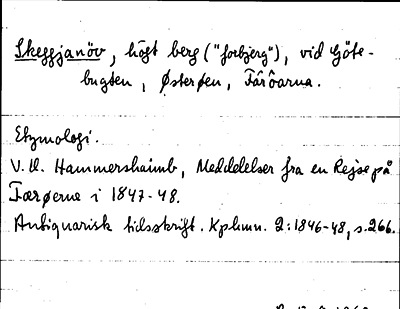 Skeggjanöv, högt berg ("forbjerg"), vid Göte-
bugten, Østerøen, Färöarna.
Etymologi.
V. U. Hammershaimb, Meddelelser fra en Rejse på
Færøerne i 1847-48.
Antiquarisk tidsskrift. Kphmn. 2:1846-48, s.266.